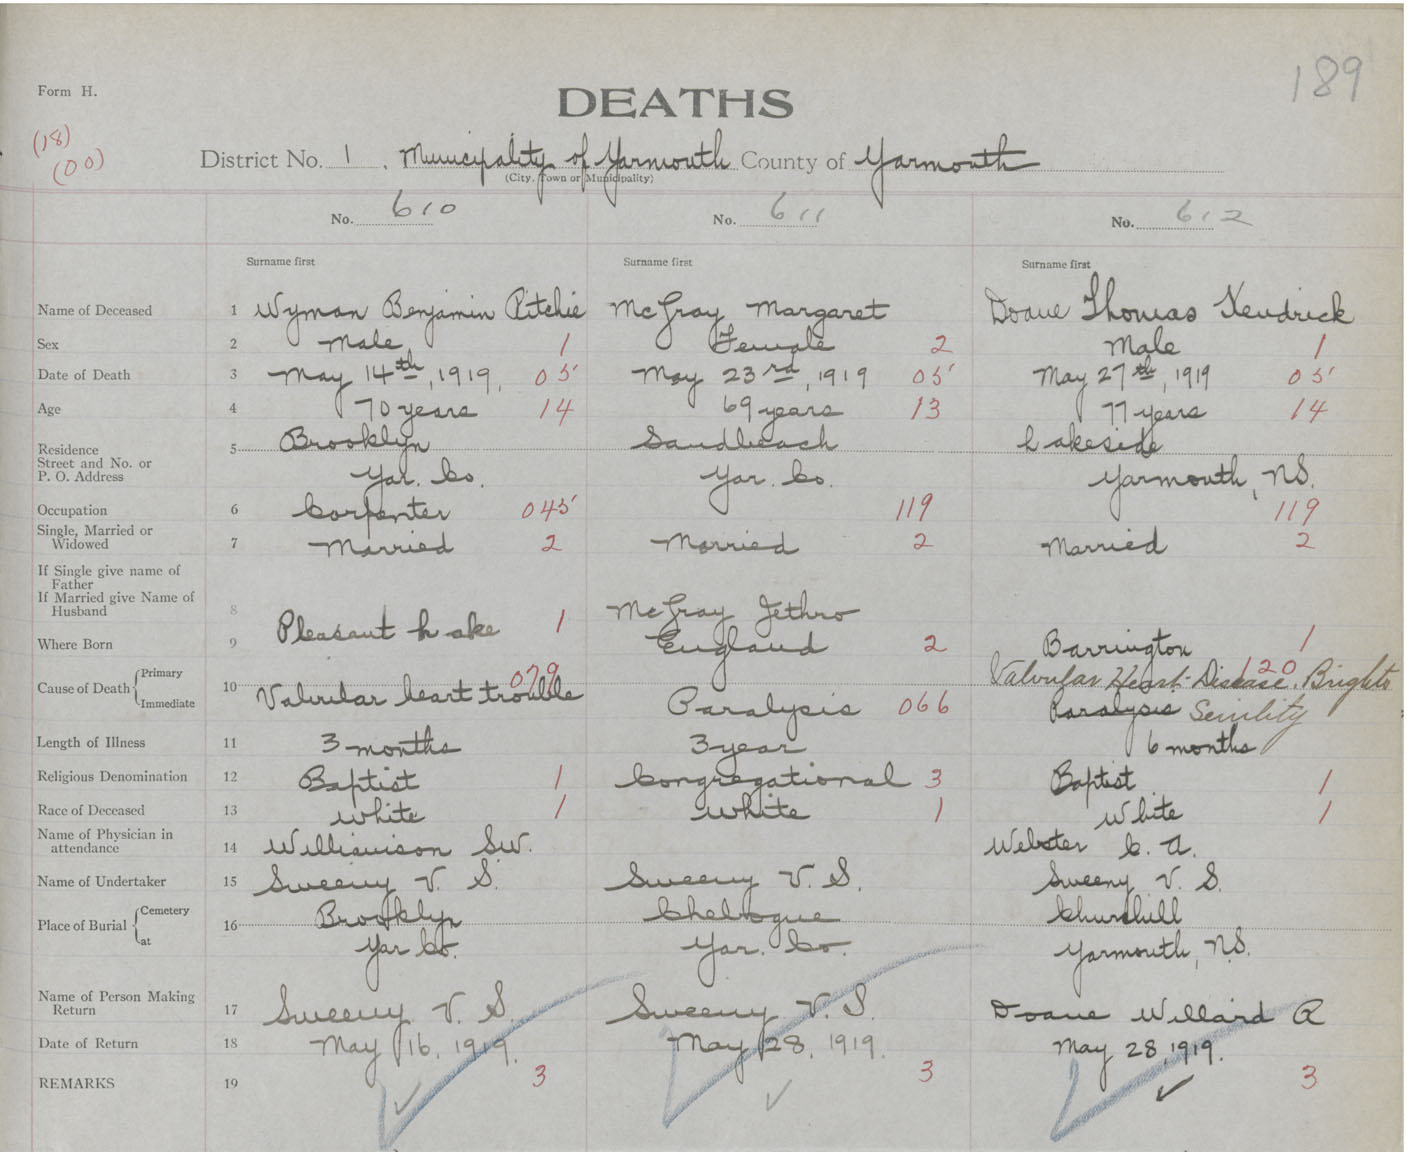 189
Form H.
DEATHS
(18)
(00)
District No. 1. Municipality of Yarmouth County of Yarmouth
(City, Town or Municipality)
No. 610 No. 611 No. 612
Surname first Surname first Surname first
Name of Deceased 1 Wyman Benjamin Pitchie McGray Margaret Doane Thomas Kendrick
Sex 2 Male 1 Female 2 Male 1
Date of Death 3 May 14th, 1919, 05 May 23rd, 1919 05 May 27th, 1919 05
Age 4 70 years 14 69 years 13 77 years 14
Residence 5 Brooklyn Sandbeach Lakeside
Street and No. or
P. O. Address Yar. Co. Yar. Co. Yarmouth, N.S.
Occupation 6 Carpenter 045 119 119
Single, Married or
Widowed 7 Married 2 Married 2 Married 2
If Single give name of
Father
If Married give Name of
Husband 8 McGray Jethro
Where Born 9 Pleasant Lake 1 England 2 Barrington 1
Cause of Death { Primary 10 079 120 Valvular Heart Disease. Brights
Immediate Valvular heart trouble Paralysis 066 Paralysis Senility
Length of Illness 11 3 months 3 year 6 months
Religious Denomination 12 Baptist 1 Congregational 3 Baptist 1
Race of Deceased 13 White 1 White 1 White 1
Name of Physician in
attendance 14 Williamson S.W. Webster C. A.
Name of Undertaker 15 Sweeny V. S. Sweeny V. S. Sweeny V. S.
Place of Burial { Cemetery 16 Brooklyn Chebogue Churchill
at Yar Co. Yar. Co. Yarmouth, N.S.
Name of Person Making
Return 17 Sweeny V. S. Sweeny V. S. Doane Willard A
Date of Return 18 May 16, 1919. May 28, 1919. May 28, 1919.
REMARKS 19 3 3 3